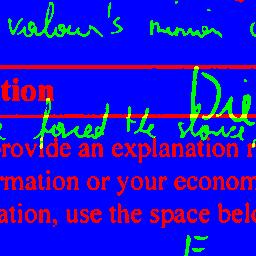 valour's minion
tion
Die
faced the slave,
rovide an explanation
rmation or your econom
ation, use the space bel